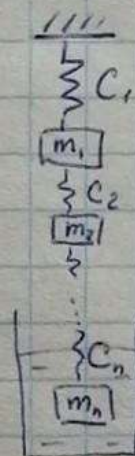 C₁
m₁
C₂
m₂
Cₙ
mₙ